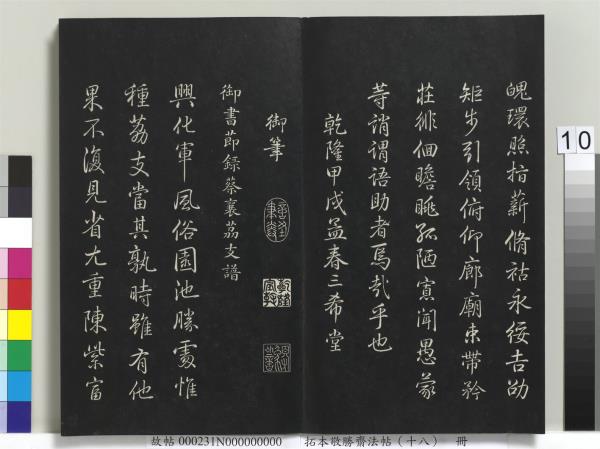 魄環照指薪脩祜永綏吉劭
矩步引領俯仰廊廟束帶矜
莊徘徊瞻眺孤陋寡聞愚蒙
等誚謂語助者焉哉乎也
乾隆甲戌孟春三希堂
御筆
御書節錄蔡襄荔支譜
興化軍風俗園池勝處惟
種荔支當其熟時雖有他
果不復見省尤重陳紫富
10
故帖 000231N000000000 拓本敬勝齋法帖（十八） 冊